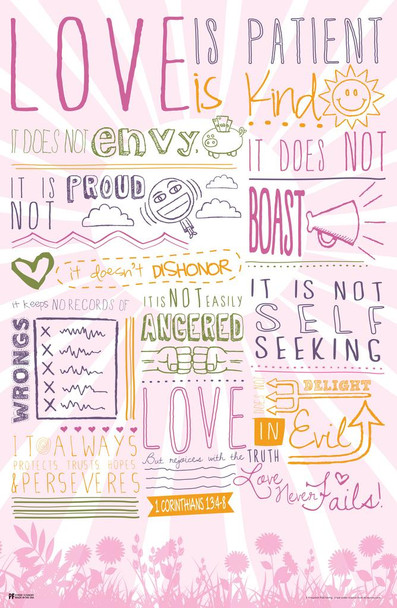 LOVE IS PATIENT
is Kind
IT DOES NOT envy.
IT DOES NOT
BOAST
IT IS NOT PROUD
it doesn't DISHONOR
IT KEEPS NO RECORDS OF
WRONGS
IT IS NOT EASILY
ANGERED
IT IS NOT
SELF
SEEKING
LOVE
DOES NOT
DELIGHT
IN Evil
But rejoices with the TRUTH
IT ALWAYS
PROTECTS TRUSTS HOPES
& PERSEVERES
1 CORINTHIANS 13:4-8
Love Never Fails!